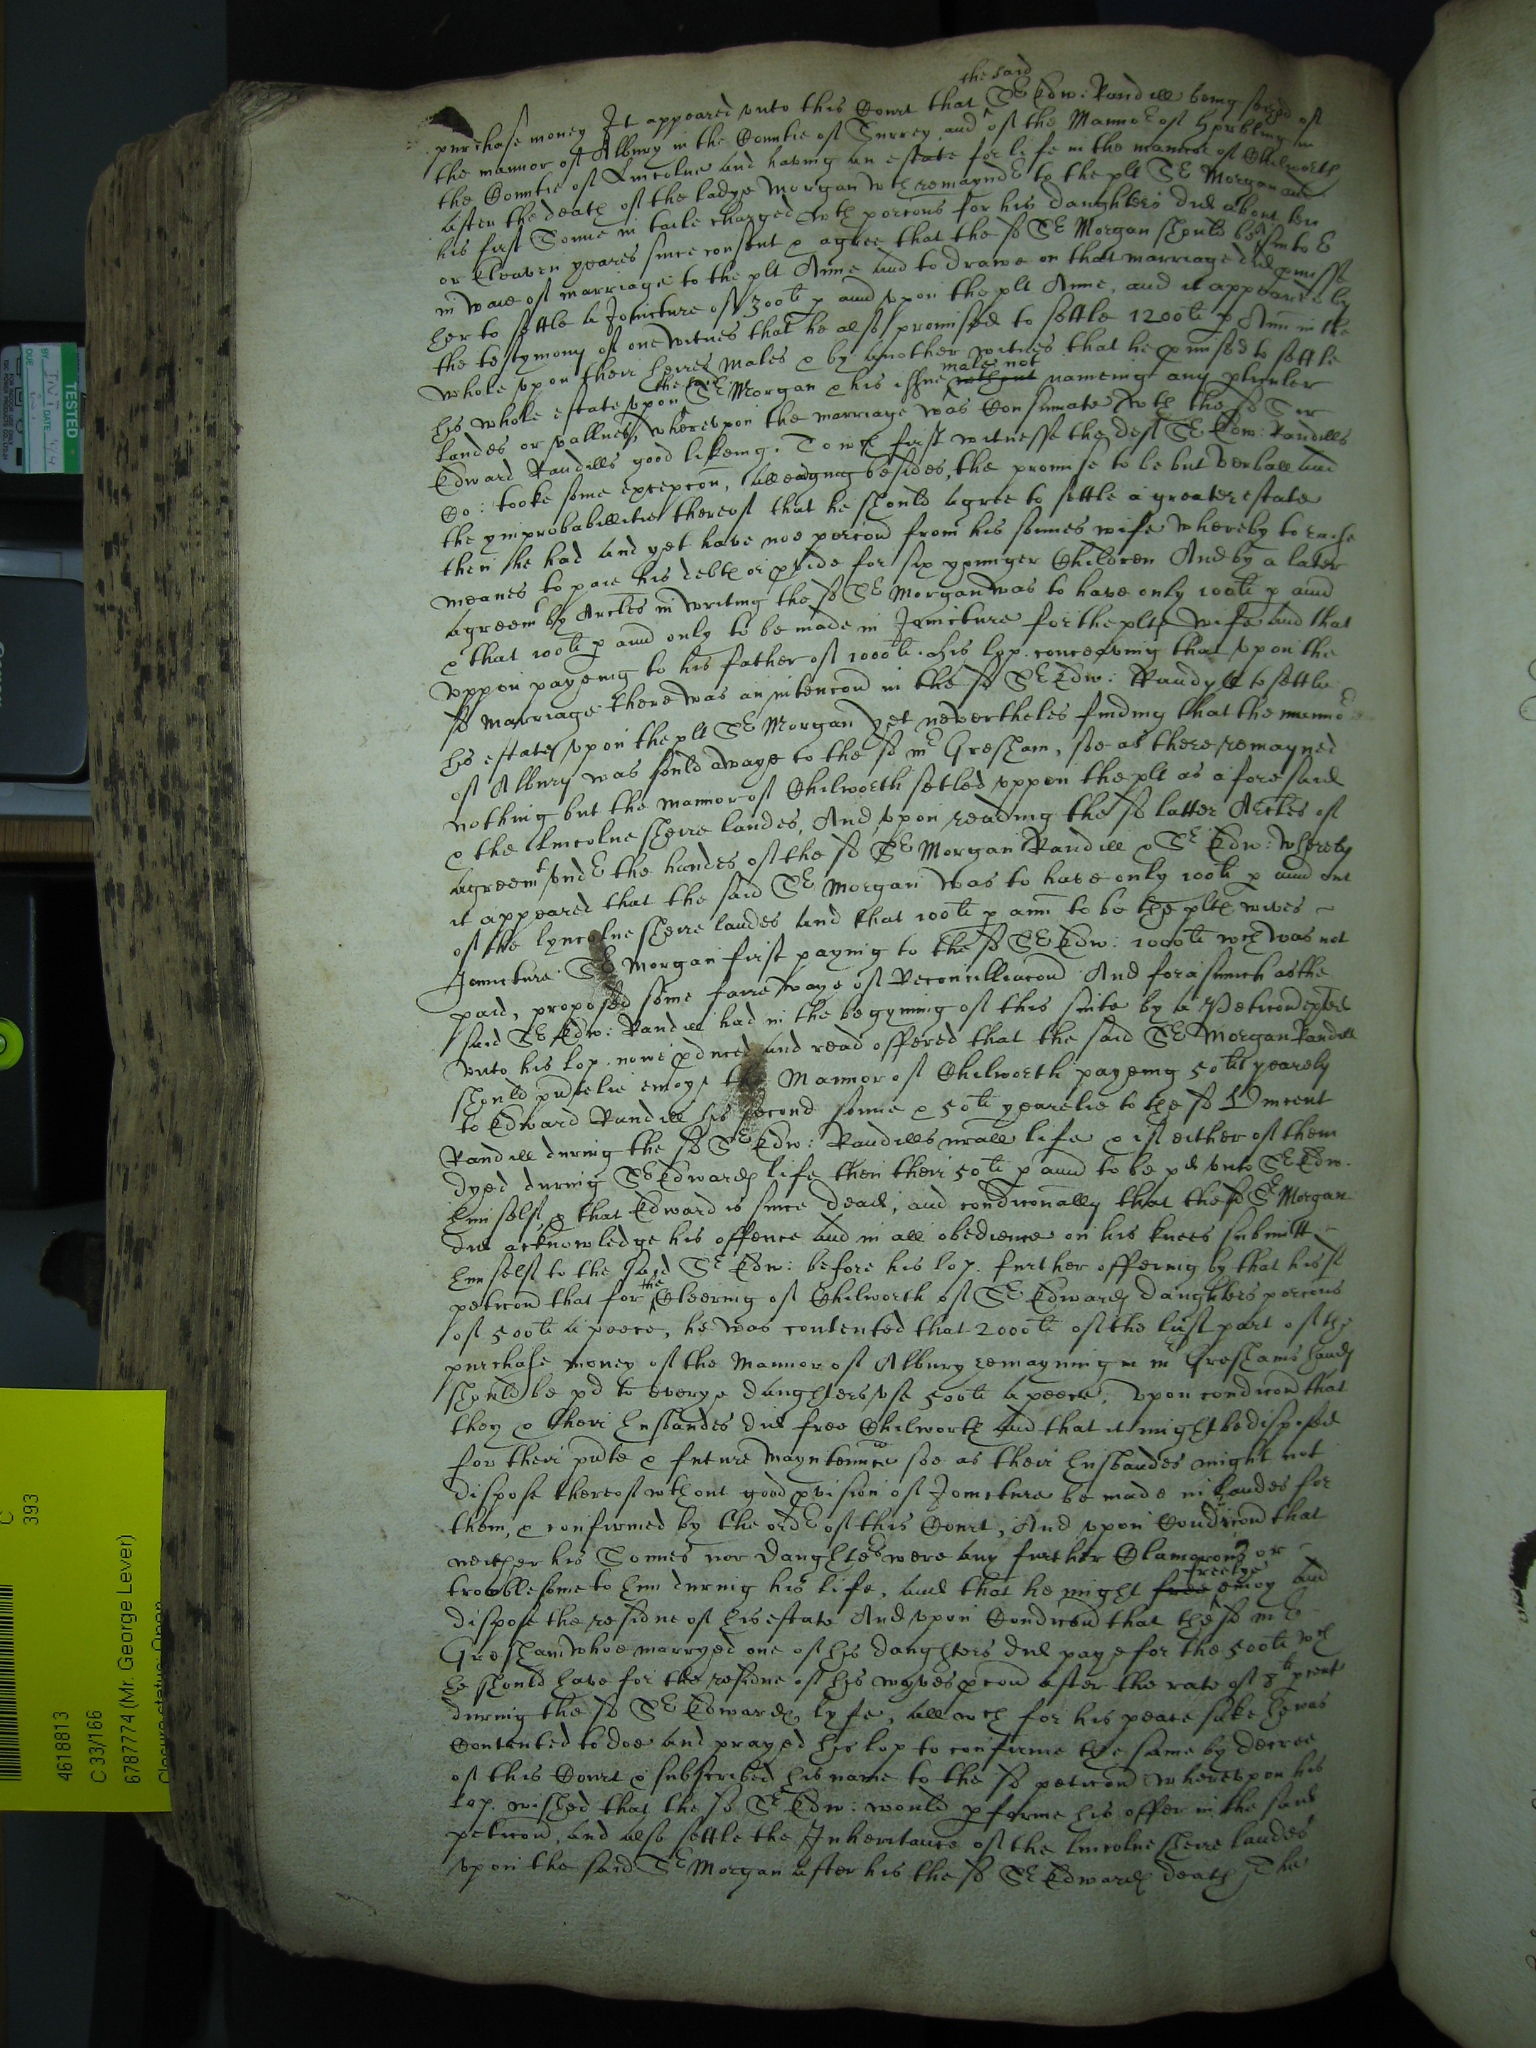 the said
purchase money It appeared unto this Court that Sr Edw: Randill being seized of
the mannor of Albury in the Countie of Surrey and of the Mannor of in
the Countie of Lincolne and having an estate for life in the mannor of Chilworth
after the death of the ladye Morgan wth remaynder to the plt Sr Morgan and
his first Sonne in taile charged wth porcons for his daughters did about ten
or Eleaven yeares since consent & agree that the sd Sr Morgan should be Suitor
in waie of marriage to the plt Anne and to drawe on that marriage did pmisse
her to settle a Joincture of 300li p ann upon the plt Anne, and it appeared by
the testymony of one witnes that he also promised to settle 1200li p Ann in the
whole upon their heires males & by another witnes that he pmised to settle
his whole estate upon the said Sr Morgan & his issue males not without nameing any pticuler
landes or vallues, whereupon the marriage was Consumate wth the sd Sir
Edward Randills good likeing. To wch first witnesse the deft Sr Edw: Randills
Co: tooke some excepcon, alleadging besides, the promise to be but verball and
the ymprobabillitie thereof that he should agree to settle a greater estate
then he had and yet have noe porcon from his sonnes wife whereby to raise
meanes to paie his debts or pvide for six yonnger Children And by a later
agreemt by Arcles in writing the sd Sr Morgan was to have only 100li p ann
& that 100li p ann only to be made in Joincture for the plts wife and that
uppon payeing to his father of 1000li. his lop. conceaving that upon the
sd Marriage there was an intencon in the sd Sr Edw: Randyll to settle
his estate upon the plt Sr Morgan yet nevertheles finding that the mannor
of Albury was sould awaye to the sd mr Gresham, soe as there remayned
nothing but the mannor of Chilworth setled uppon the plt as aforesaid
& the Lincolne sheire landes, And upon reading the sd latter Arcles of
agreemt under the handes of the sd Sr Morgan Randill & Sr Edw: whereby
it appeared that the said Sr Morgan was to have only 100li p ann out
of the lyncolne sheire landes and that 100li p ann to be the plts wives
Joincture Sr Morgan first paying to the sd Sr Edw: 1000li wch was not
paid, proposed some faire waye of Reconcilliacon And forasmuch as the
said Sr Edw: Randill had in the begyning of this suite by a Peticon
unto his lop. nowe pduced and read offered that the said Sr Morgan Randill
should pntelie enioye the Mannor of Chilworth payeing 50li yearely
to Edward Randill his second sonne & 50li yearelie to the sd Vincent
Randill during the sd Sr Edw: Randills nrall life & if either of them
dyed during Sr Edwards life then their 50li p ann to be pd unto Sr Edw.
himself & that Edward is since dead, and condiconally that the sd Sr Morgan
did acknowledge his offence and in all obedience on his knees submitt
himself to the said Sr Edw: before his lop. further offering by that his sd
peticon that for the Cleering of Chilworth of Sr Edwards daughters porcons
of 500li a peece, he was contented that 2000li of the last part of the
purchase money of the Mannor of Albury remayning in mr Greshams hands
should be pd to everye daughters use 500li a peece, upon condicon that
they & their husbandes did free Chilworth and that it might be disposed
for their pnte & future mayntennce soe as their husbandes might not
dispose thereof wthout good pvision of Joincture be made in landes for
them, & confirmed by the order of this Court, And upon Condicon that
neither his Sonnes nor daughters were any further Clamorous or
troublesome to him during his life, and that he might free freelye enioy and
dispose the residue of his estate And upon Condicon that the sd mr
Gresham whoe marryed one of his daughters did paye for the 500li wch
he should have for the residue of his wyves pcon after the rate of 8li p cent
during the sd Sr Edwards lyfe, all wch for his peace sake he was
Contented to doe and prayed his lop to confirme the same by decree
of this Court & subscribed his name to the sd peticon whereupon his
lop. wished that the sd Sr Edw: would pforme his offer in the said
peticon, and also settle the Inheritance of the lincolne sheire landes
upon the said Sr Morgan after his the sd Sr Edwards death The
TESTED
DUE DATE
BY
C
393
4618813
C 33/166
6787774 (Mr. George Lever)
Closure status: Open